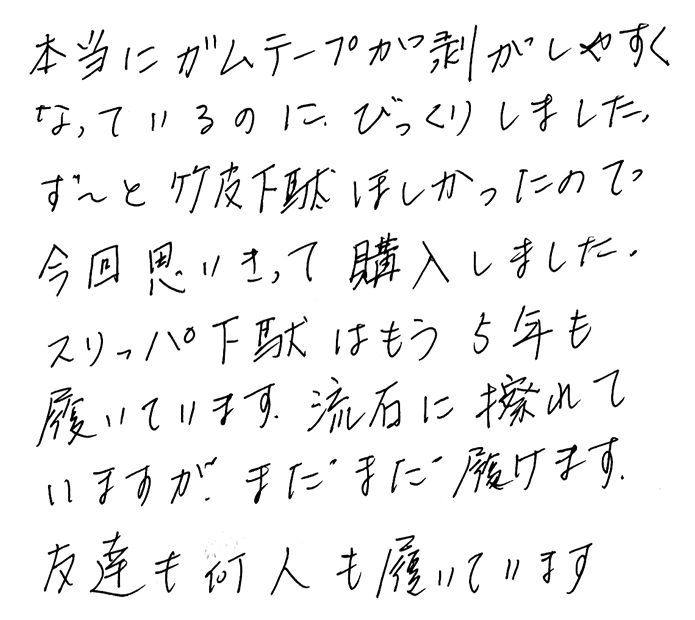 本当にガムテープが剥がしやすく
なっているのに、びっくりしました。
ず〜と竹皮下駄ほしかったので
今回思いきって購入しました。
スリッパ下駄はもう5年も
履いています。流石に擦れて
いますが、まだまだ履けます。
友達も何人も履いています